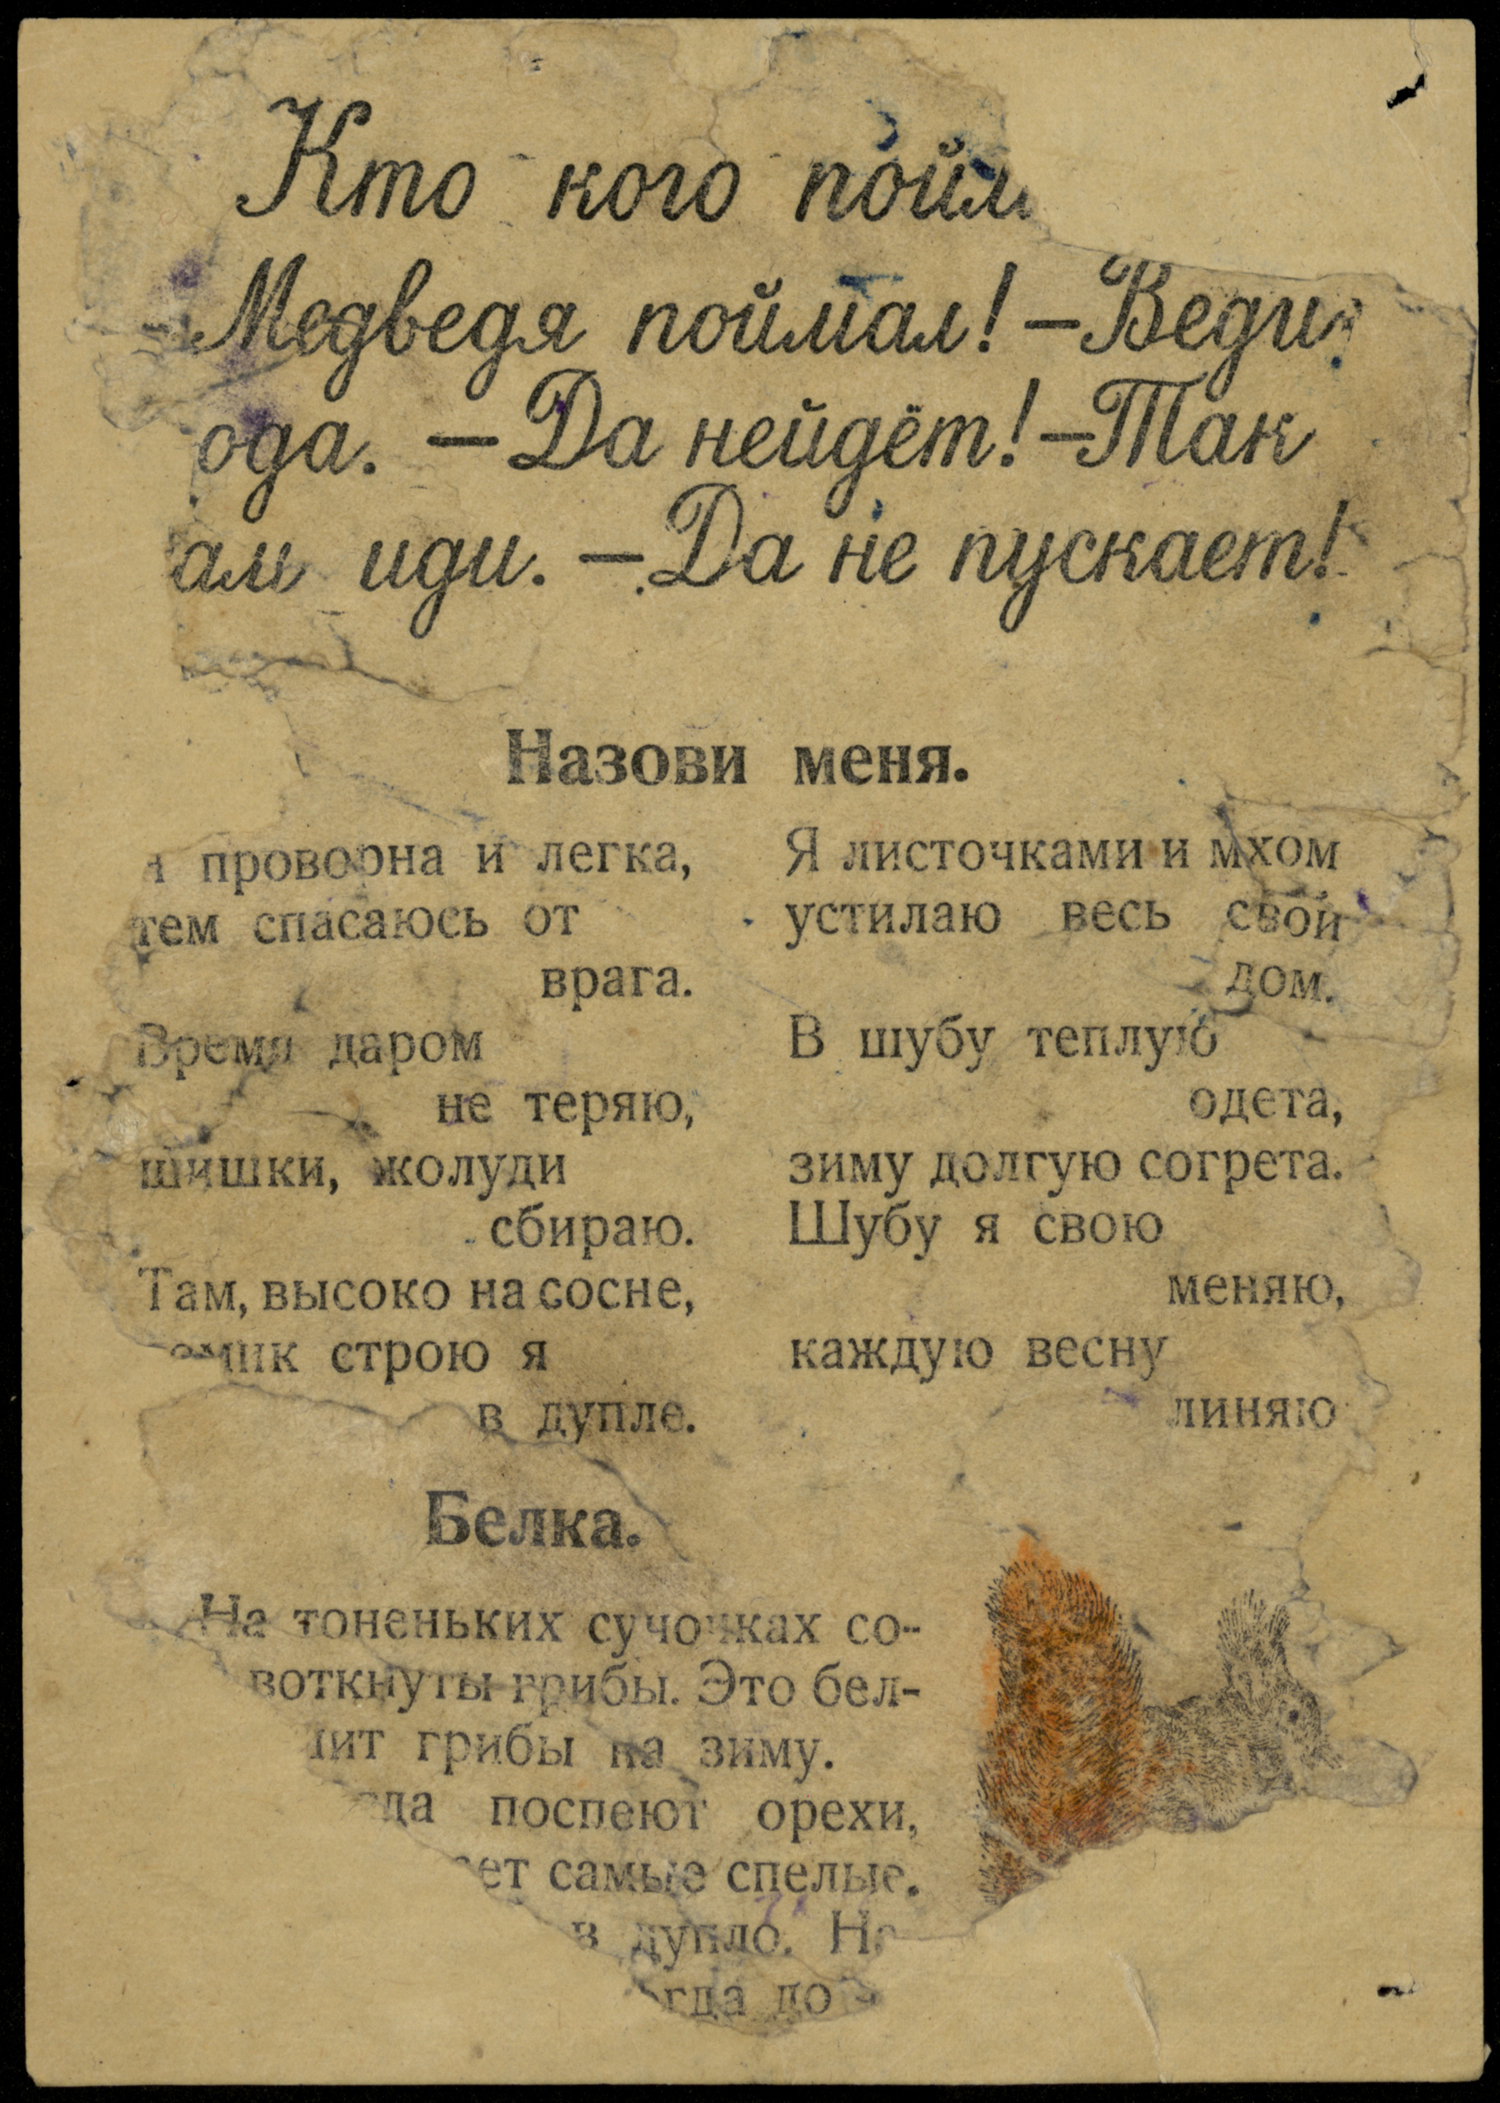 Кто кого пойм
Медведя поймал! — Веди
ода. — Да нейдёт! — Так
ам иди. — Да не пускает!
Назови меня.
проворна и легка,
тем спасаюсь от
врага.
Время даром
не теряю,
шишки, жолуди
сбираю.
Там, высоко на сосне,
омик строю я
в дупле.
Я листочками и мхом
устилаю весь свой
дом.
В шубу теплую
одета,
зиму долгую согрета.
Шубу я свою
меняю,
каждую весну
линяю
Белка.
На тоненьких сучочках со-
воткнуты грибы. Это бел-
ит грибы на зиму.
да поспеют орехи,
ает самые спелые.
в дупло. Н
гда до